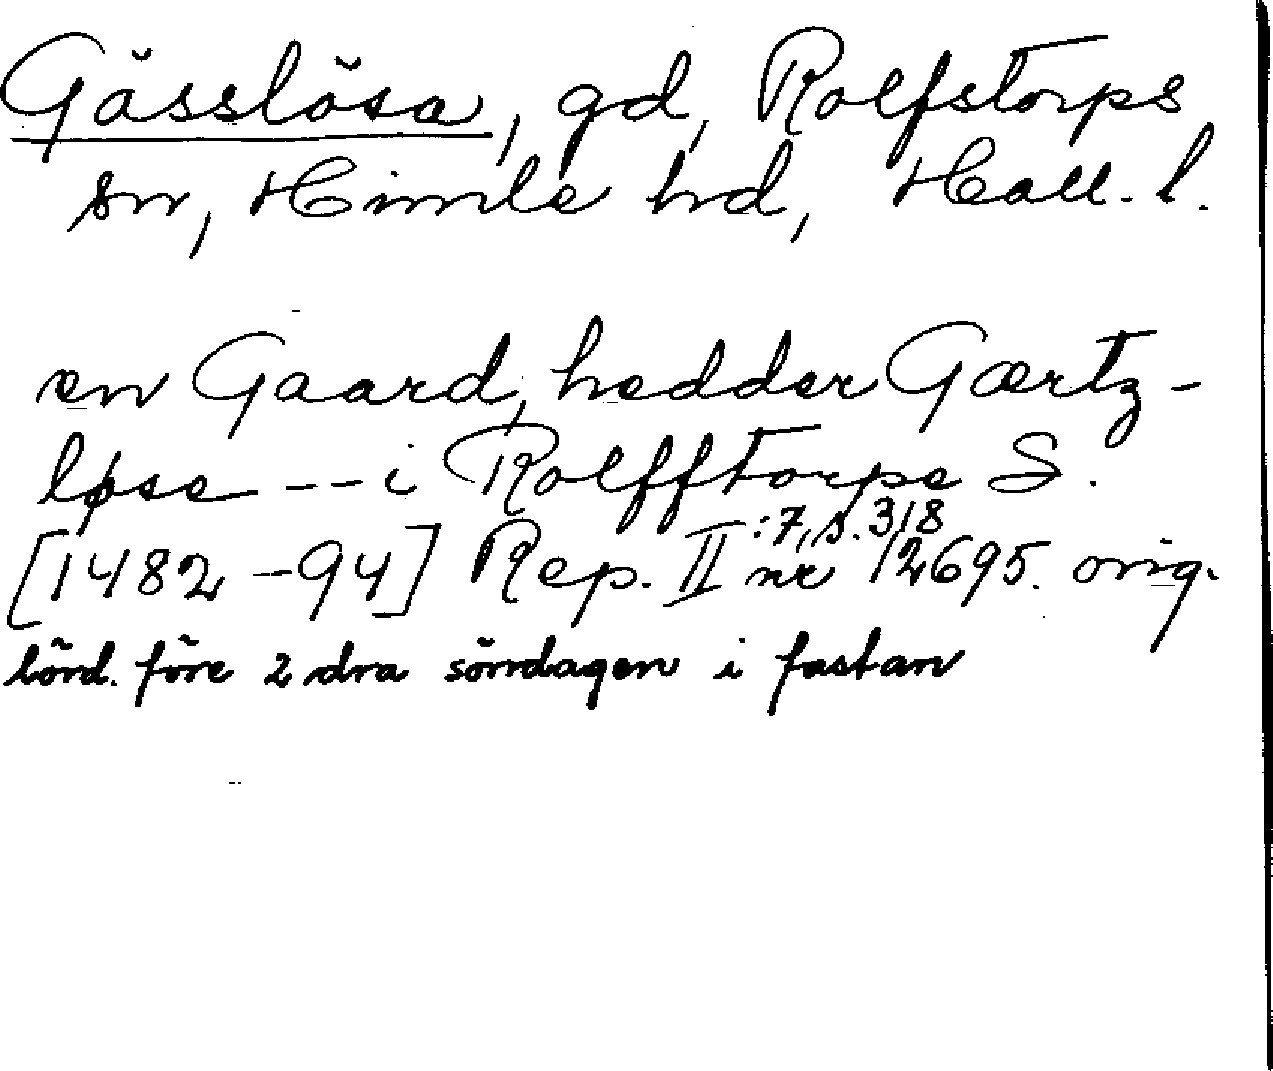 Gässlösa, gd, Rolfstorps
sn, Himle hd, Hall. l.
en Gaard, hedder Gærtz-
løse -- i Rolfftorpe S.
[1482-94] Rep. II :7, s. 318 nr 12695. orig.
lörd. före 2 dra söndagen i fastan